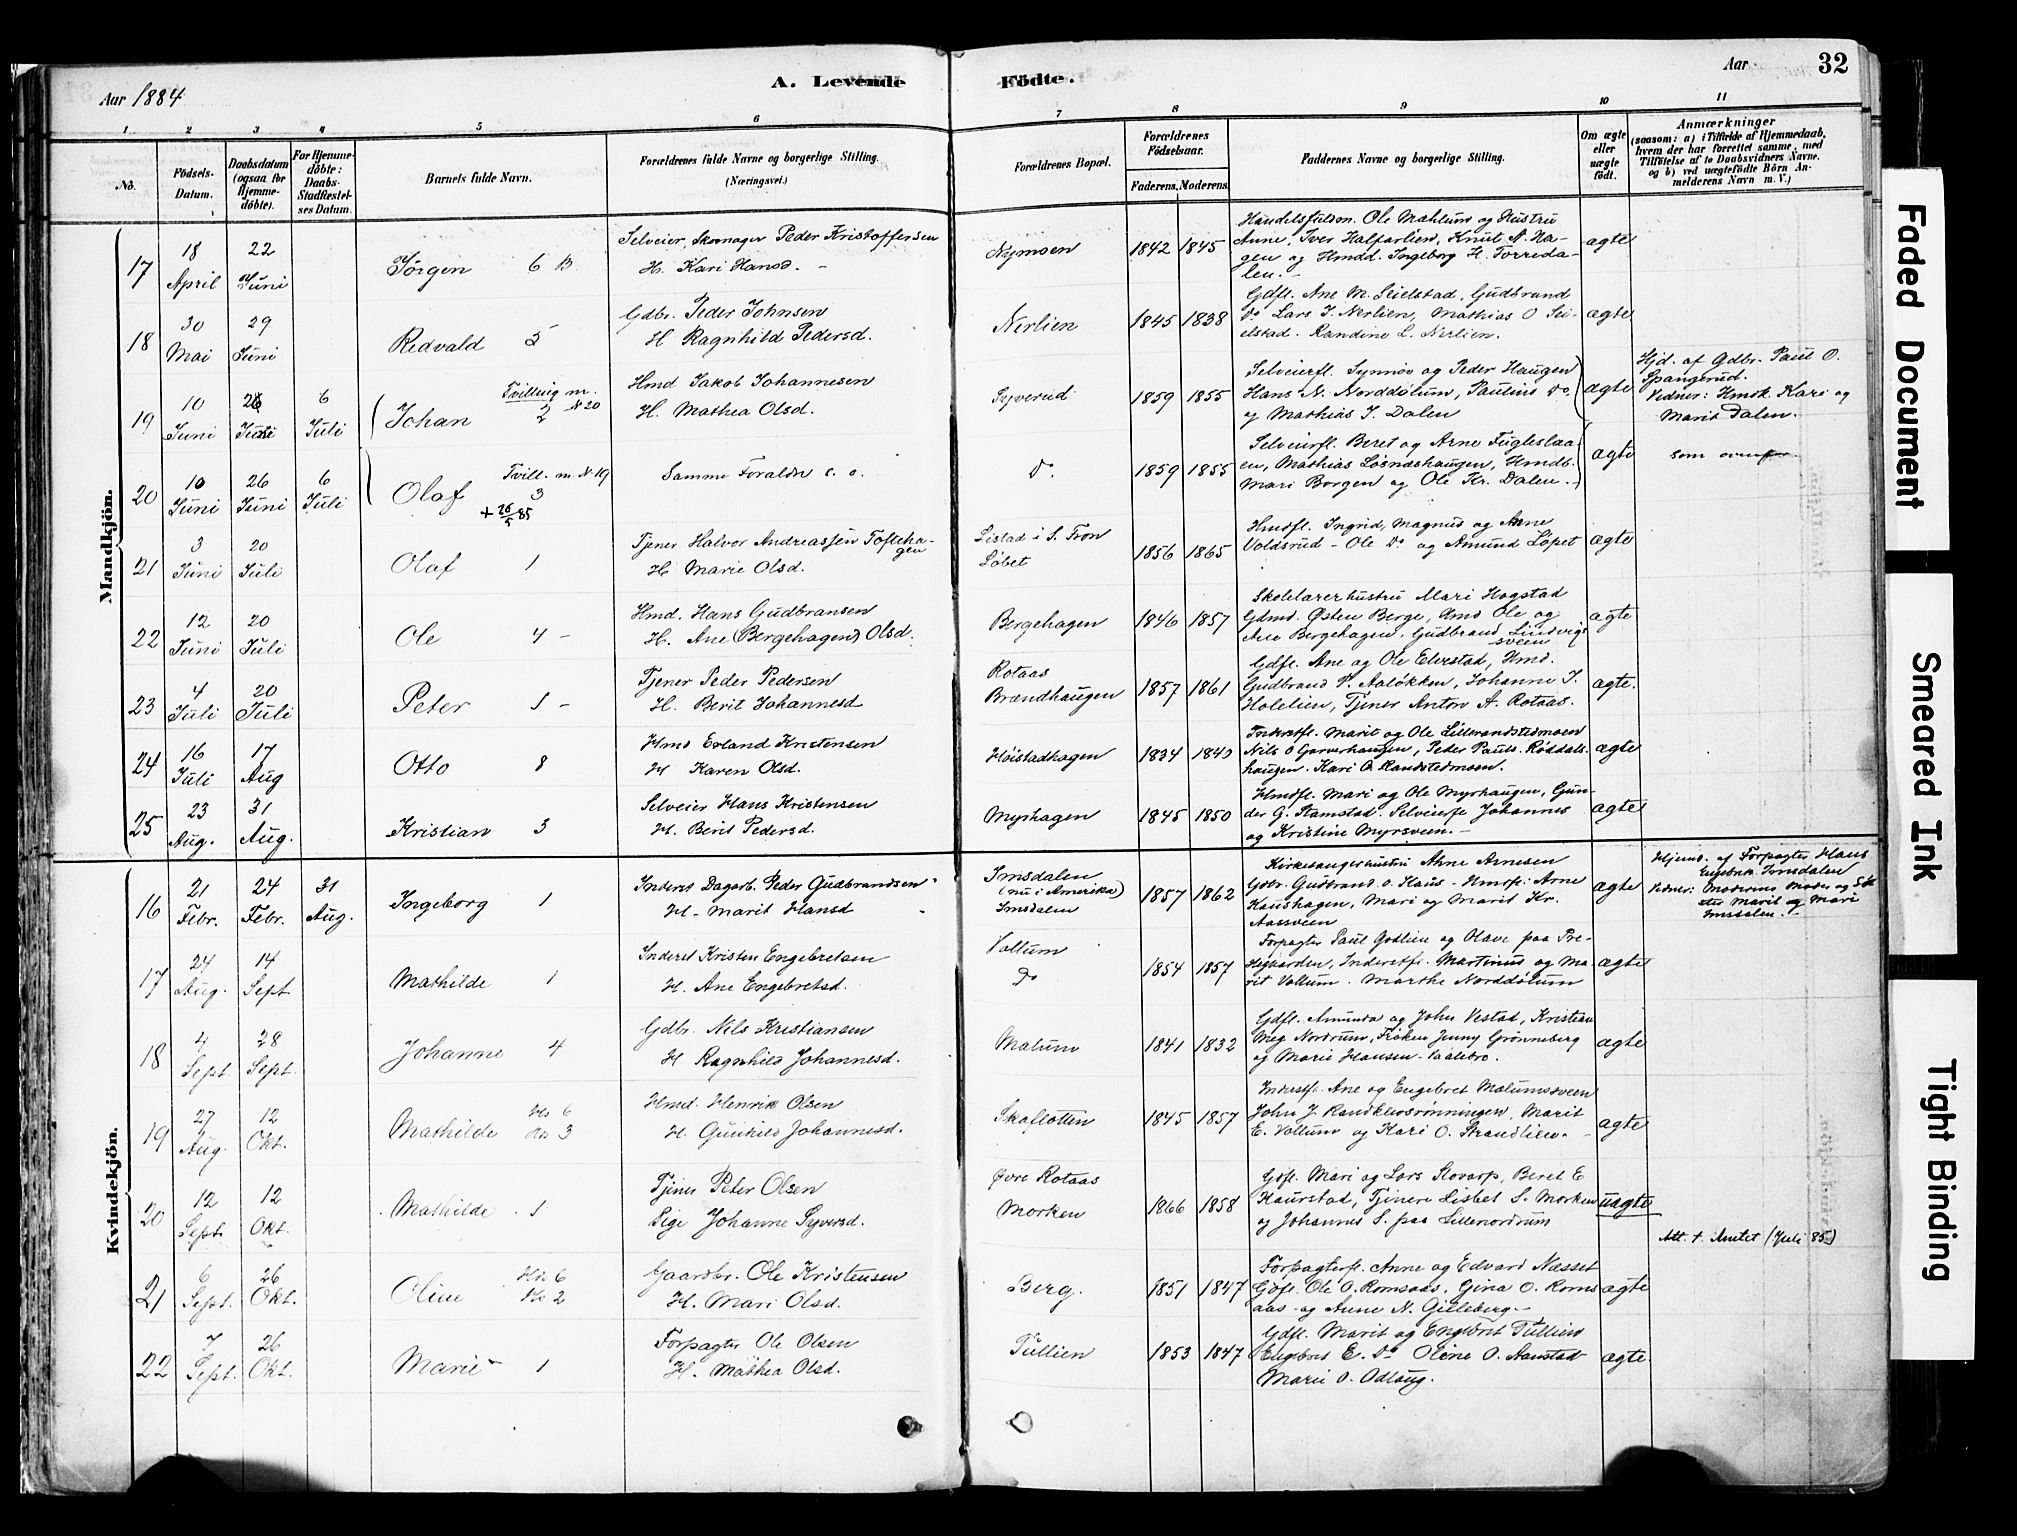 Aar 1884
A. Levende Födte.
Aar 32
1 2 3 4 5 6 7 8 9 10 11
No. Födsels-Datum. Daabsdatum (ogsaa for Hjemmedöbte). For Hjemmedöbte: Daabs-Stadfæstelses Datum. Barnets fulde Navn. Forældrenes fulde Navne og borgerlige Stilling. (Næringsvei.) Forældrenes Bopæl. Forældrenes Födselsaar. Faderens. Moderens. Faddernes Navne og borgerlige Stilling. Om ægte eller uægte födt. Anmærkninger (saasom: a) i Tilfælde af Hjemmedaab, hvem der har forrettet samme, med Tilföielse af to Daabsvidners Navne, og b) ved uægtefödte Börn Anmelderens Navn m. V.)
Mandkjön.
17 18 April 22 Juni Jörgen 6 B.
Selveier, Skomager Peder Kristoffersen
H. Kari Hansd. -
Nymoen 1842 1845
Handelsfuldm. Ole Mæhlum og Hustru
Anne, Iver Halfarlien, Knut N. Ha-
gen og Hmdd. Ingeborg H. Forreda-
len. -
ægte
18 30 Mai 29 Juni Redvald 5
Gdbr. Peder Johnsen
H Ragnhild Pedersd.
Nerlien 1845 1838
Gdfl. Ane M. Seielstad, Gudbrand
Do Lars J. Nerlien, Mathias O Sei-
elstad. Randine L. Nerlien.
ægte
19 10 Juni 26 Juni 6 Juli Johan Tvilling m. N 20 2
Hmd Jakob Johannesen
H. Mathea Olsd.
Syverud 1859 1855
Selveierfl. Synnöv og Peder Haugen
Hans N. Norddölum, Paulins Do.
og Mathias J. Dalen
ægte
Hjd. af Gdbr. Paul O.
Spangerud.
Vidner: Hmsk. Kari og
Marit Dalen.
20 10 Juni 26 Juni 6 Juli Olaf Tvill. m. N 19 3
+ 26/5 85
Samme Foraldre s. o.
Do. 1859 1855
Selveierfl. Beret og Arne Fugleslaa-
en, Mathias Lösnæshaugen, Hmdb.
Mari Borgen og Ole Kr. Dalen. -
ægte som ovenfor
21 3 Juni 20 Juli Olaf 1
Tjener Halvor Andreassen Tofteha-
gen
H Marie Olsd.
Listad i S. Fron
Löbet 1856 1865
Hmdfl. Ingrid, Magnus og Anne
Voldsrud - Ole Do og Amund Löpet
ægte
22 12 Juni 20 Juli Ole 4 -
Hmd. Hans Gudbransen
H. Ane (Bergehagen) Olsd.
Bergehagen 1846 1857
Skolelærerhustru Mari Hogstad
Gdmd. Østen Berge, Hmd Ole og
Ane Bergehagen, Gudbrand Lindvig
sveen
ægte
23 4 Juli 20 Juli Peter 1 -
Tjener Peder Pedersen
H. Berit Johannesd
Rotaas
Brændhaugen 1857 1861
Gdfl. Ane og Ole Elvestad, Hmd.
Gudbrand P. Aalökken, Johanne J.
Holelien, Tjener Anton A. Rotaas.
ægte.
24 16 Juli 17 Aug Otto 8
Hmd Erland Kristensen
H Karen Olsd.
Höistadhagen 1834 1840
Inderstfl. Marit og Ole Lillerandstedmoen
Nils O Garverhaugen, Peder Pauls. Röddals-
haugen. Kari O. Randstedmoen.
ægte
25 23 Aug. 31 Aug. Kristian 3
Selveier Hans Kristensen
H. Berit Pedersd.
Myrhagen 1845 1850
Hmdfl. Mari og Ole Myrhaugen, Gun-
der G. Stamstad. Selveierfl Johannes
og Kristine Myrsveen. -
ægte
Kvindekjön.
16 21 Febr. 24 Febr. 31 Aug. Ingeborg 1
Inderst Dagarb. Peder Gudbrandsen
H - Marit Hansd
Imsdalen
(nu i Amerika)
Imsdalen 1857 1862
Kirkesangerhustru Anne Arnesen
Gdbr. Gudbrand O. Kaus - Hmfl: Arne
Kaushagen, Mari og Marit Kr.
Aassveen
ægte
Hjemd. af Forpagter Hans
Engebrik. Imsdalen
Vidner: Moderens Moder og Sö-
ster Marit og Mari
Imsdalen. -
17 24 Aug. 14 Sept Mathilde 1
Inderst Kristen Engebretsen
H. Ane Engebretsd.
Vollum
Do 1854 1857
Forpagter Paul Godlien og Olave paa Pre-
stegaarden, Inderstfl. Martinus og Ma-
rit Vollum. Marthe Norddölum
ægte
18 4 Sept. 28 Sept. Johanne 4
Gdbr. Nils Kristiansen
H Ragnhild Johannesd.
Mælum 1841 1832
Gdfl. Amunda og John Vestad, Kristian
Meg Nordrum, Fröken Jenny Grönneberg
og Marie Hansen. Vaalebro.
ægte
19 27 Aug. 12 Okt. Mathilde Hr 6 Hr 3
Hmd. Henrik Olsen
H. Gunhild Johannesd.
Skaflotten 1845 1857
Inderstfl. Ane og Engebret Mælumsveen
John J. Randklevsrönningen, Marit
E. Vollum og Kari O. Strandlien. -
ægte
20 12 Sept 12 Okt. Mathilde 1
Tjener Peter Olsen
Pige Johanne Syversd.
Øvre Rotaas
Morken 1866 1858
Gdfl. Mari og Lars Stovarp, Beret E
Haurstad, Tjenere Lisbet S. Morken
og Johannes S. paa Lillenordrum
uægte
Att. t. Amtet (Juli 85)
21 6 Sept. 26 Okt. Oline Hr 6 Hr 2
Gaardbr. Ole Kristensen
H. Mari Olsd.
Berg. 1851 1847
Forpagterfl. Anne og Edvard Næsset
Gdfl. Ole O. Romsaas, Gina O. Roms
aas - og Anne N. Gilleberg -
ægte
22 7 Sept. 26 Okt. Marie - 1
Forpagter Ole Olsen
H. Mathea Olsd.
Tullien 1853 1847
Gdfl. Marit og Engebret Tullien
Engebret E. Do Oline O. Aanstad
Marie O. Odlaug.
ægte.
Faded Document
Smeared Ink
Tight Binding